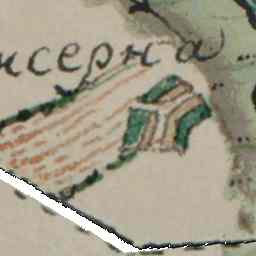 исерна